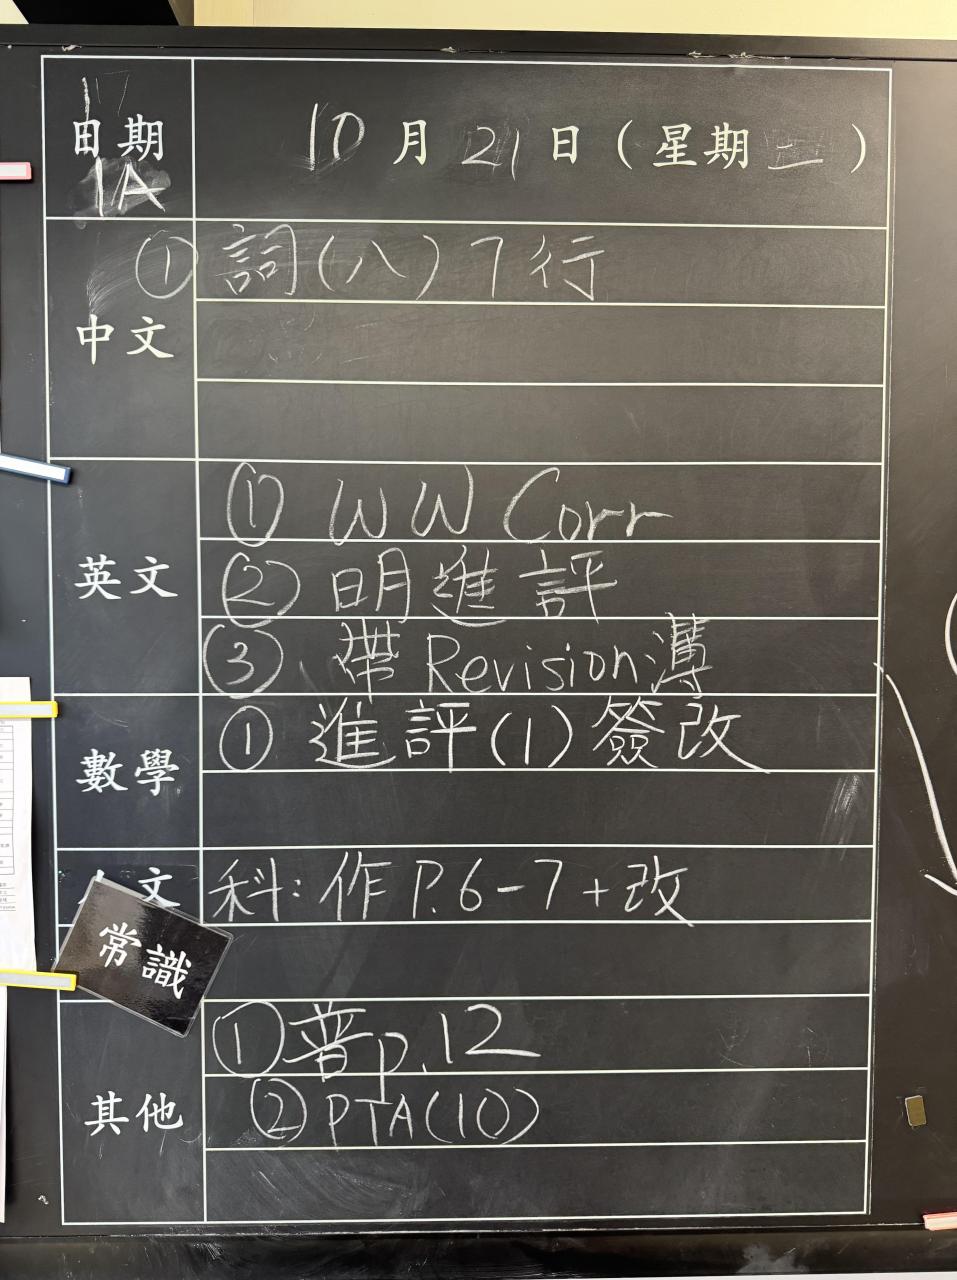 17
日期 10月21日（星期二）
1A
中文 ① 詞(八)7行
英文 ① WW Corr
② 明進評
③ 帶Revision簿
數學 ① 進評(1)簽改
文 科:作P.6-7+改
常識
其他 ①普p.12
②PTA(10)